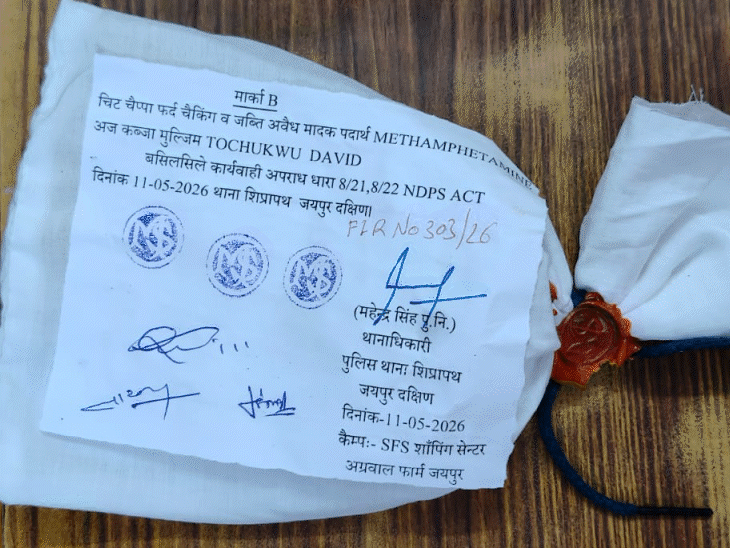 मार्का B
चिट चैप्पा फर्द चैकिंग व जब्ति अवैध मादक पदार्थ METHAMPHETAMINE
अज कब्जा मुल्जिम TOCHUKWU DAVID
बसिलसिले कार्यवाही अपराध धारा 8/21,8/22 NDPS ACT
दिनांक 11-05-2026 थाना शिप्रापथ जयपुर दक्षिण।
FIR No 303/26
(महेन्द्र सिंह पु.नि.)
थानाधिकारी
पुलिस थाना शिप्रापथ
जयपुर दक्षिण
दिनांक-11-05-2026
कैम्प:- SFS शॉपिंग सेन्टर
अग्रवाल फार्म जयपुर